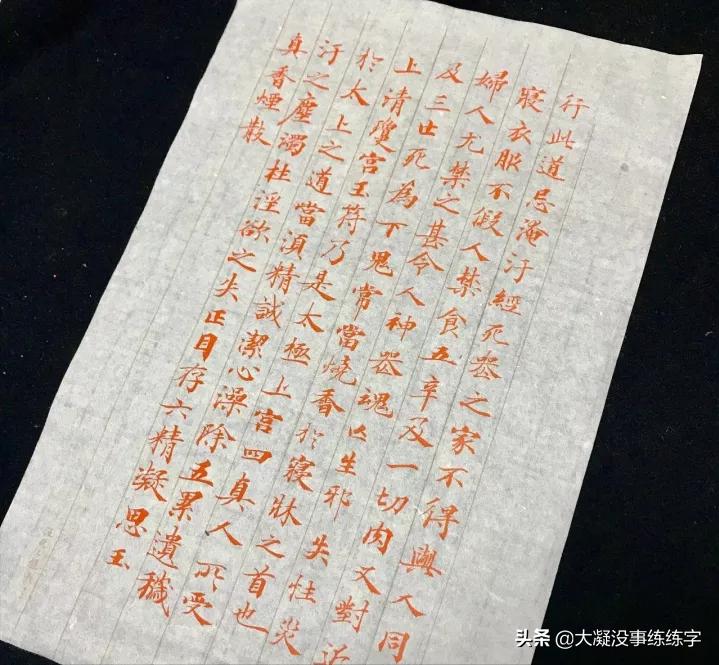 行此道忌淹汙經死喪之家不得與人同
寢衣服不假人禁食五辛及一切肉又對近
婦人尤禁之甚令人神喪魂亡生邪失性災
及三世死為下鬼常當燒香於寢牀之首也
上清瓊宮玉符乃是太極上宮四真人所受
於太上之道當湏精誠潔心澡除五累遺穢
汙之塵濁杜淫欲之失正目存六精凝思玉
真香煙散
头条 @大凝没事练练字